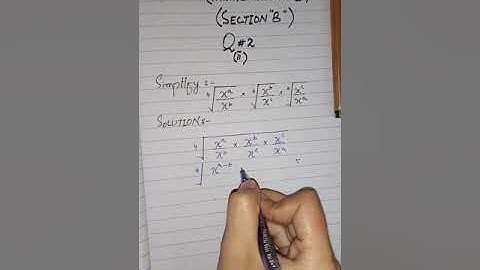 (SECTION "B")
Q#2
(ii)
Simplify :-
⁴√(xᵃ/xᵇ) × ⁴√(xᵇ/xᶜ) × ⁴√(xᶜ/xᵃ)
SOLUTION:-
⁴√(xᵃ/xᵇ × xᵇ/xᶜ × xᶜ/xᵃ)
⁴√ xᵃ⁻ᵇ